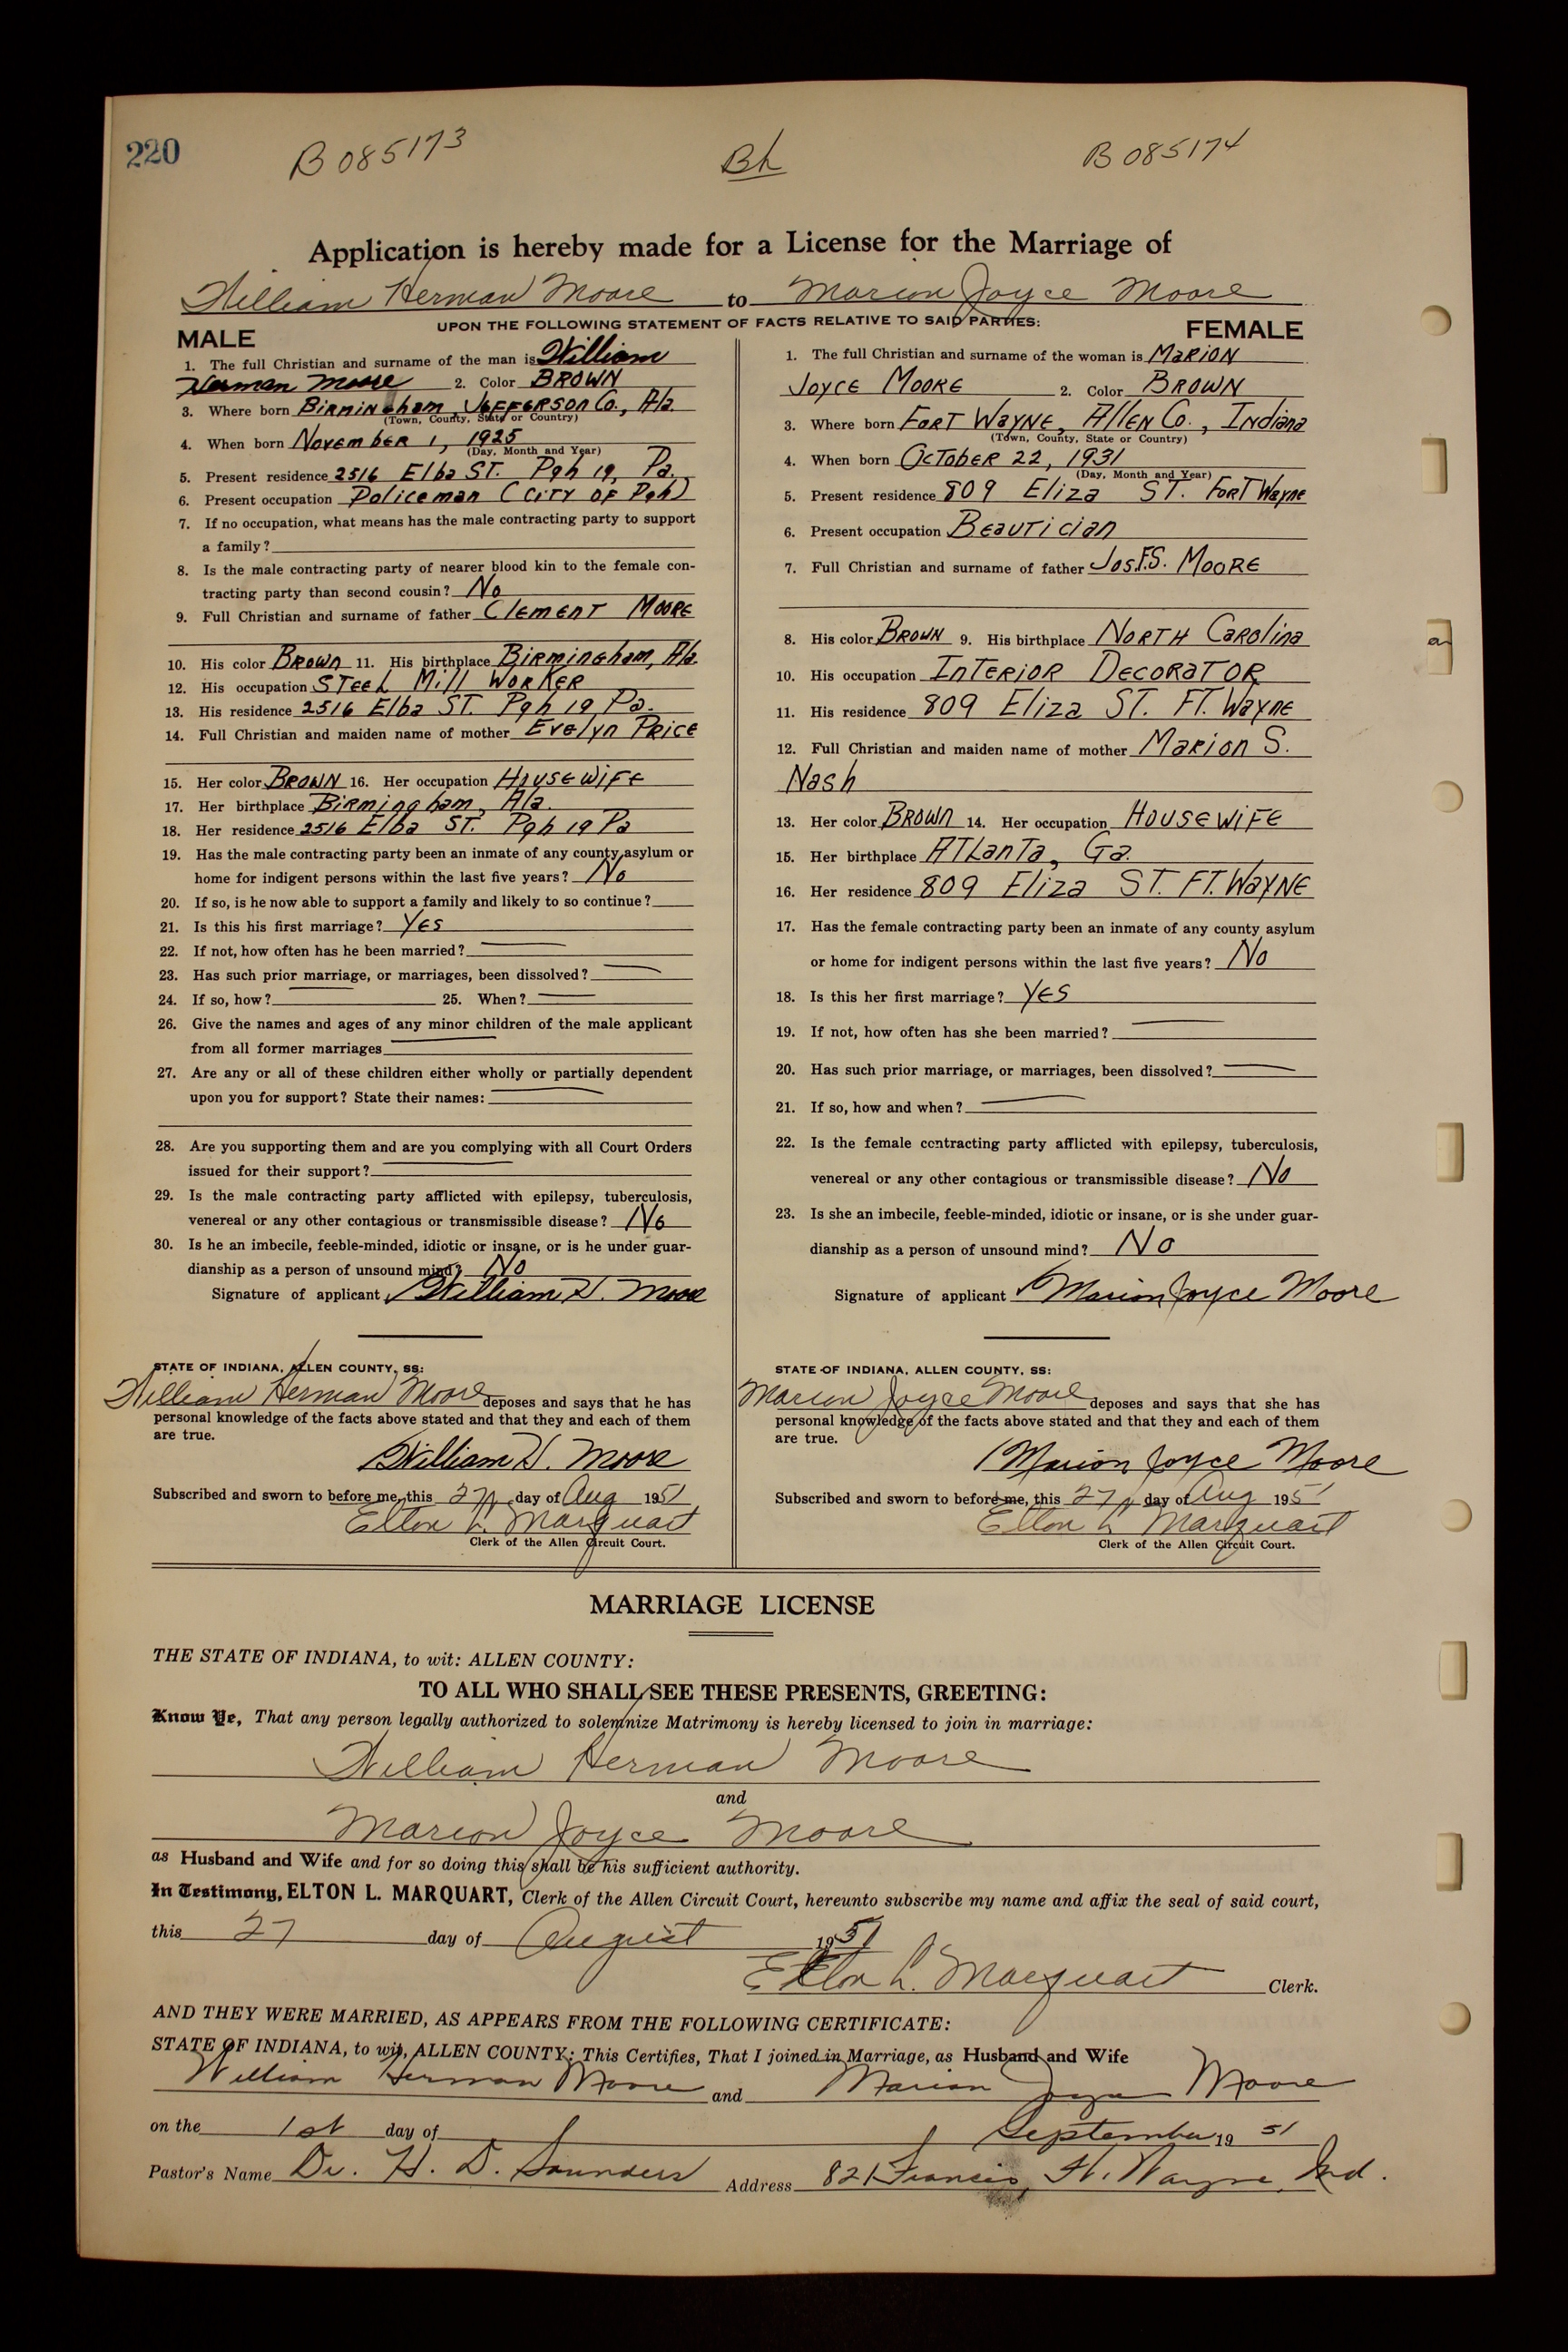 220
B 085173
Bh
B 085174
Application is hereby made for a License for the Marriage of
William Herman Moore to Marion Joyce Moore
UPON THE FOLLOWING STATEMENT OF FACTS RELATIVE TO SAID PARTIES:
MALE
1. The full Christian and surname of the man is William
Herman Moore 2. Color BROWN
3. Where born Birmingham, JEFFERSON Co., Ala.
(Town, County, State or Country)
4. When born November 1, 1925
(Day, Month and Year)
5. Present residence 2516 Elba ST. Pgh 19, Pa.
6. Present occupation Policeman (CITY OF Pgh)
7. If no occupation, what means has the male contracting party to support
a family?
8. Is the male contracting party of nearer blood kin to the female con-
tracting party than second cousin? No
9. Full Christian and surname of father Clement Moore
10. His color Brown 11. His birthplace Birmingham, Ala.
12. His occupation STeel Mill WorKer
13. His residence 2516 Elba ST. Pgh 19 Pa.
14. Full Christian and maiden name of mother Evelyn Price
15. Her color BROWN 16. Her occupation Housewife
17. Her birthplace Birmingham, Ala.
18. Her residence 2516 Elba ST. Pgh 19 Pa
19. Has the male contracting party been an inmate of any county asylum or
home for indigent persons within the last five years? No
20. If so, is he now able to support a family and likely to so continue?
21. Is this his first marriage? Yes
22. If not, how often has he been married?
23. Has such prior marriage, or marriages, been dissolved?
24. If so, how? 25. When?
26. Give the names and ages of any minor children of the male applicant
from all former marriages
27. Are any or all of these children either wholly or partially dependent
upon you for support? State their names:
28. Are you supporting them and are you complying with all Court Orders
issued for their support?
29. Is the male contracting party afflicted with epilepsy, tuberculosis,
venereal or any other contagious or transmissible disease? No
30. Is he an imbecile, feeble-minded, idiotic or insane, or is he under guar-
dianship as a person of unsound mind? No
Signature of applicant William H. Moore
STATE OF INDIANA, ALLEN COUNTY, SS:
William Herman Moore deposes and says that he has
personal knowledge of the facts above stated and that they and each of them
are true.
William H. Moore
Subscribed and sworn to before me, this 27 day of Aug 1951
Elton L. Marquart
Clerk of the Allen Circuit Court.
FEMALE
1. The full Christian and surname of the woman is Marion
Joyce Moore 2. Color Brown
3. Where born Fort Wayne, Allen Co., Indiana
(Town, County, State or Country)
4. When born October 22, 1931
(Day, Month and Year)
5. Present residence 809 Eliza ST. Fort Wayne
6. Present occupation Beautician
7. Full Christian and surname of father Jos.F.S. Moore
8. His color Brown 9. His birthplace North Carolina
10. His occupation Interior Decorator
11. His residence 809 Eliza ST. FT. Wayne
12. Full Christian and maiden name of mother Marion S.
Nash
13. Her color Brown 14. Her occupation Housewife
15. Her birthplace ATLanTa, Ga.
16. Her residence 809 Eliza ST. FT. Wayne
17. Has the female contracting party been an inmate of any county asylum
or home for indigent persons within the last five years? No
18. Is this her first marriage? Yes
19. If not, how often has she been married?
20. Has such prior marriage, or marriages, been dissolved?
21. If so, how and when?
22. Is the female contracting party afflicted with epilepsy, tuberculosis,
venereal or any other contagious or transmissible disease? No
23. Is she an imbecile, feeble-minded, idiotic or insane, or is she under guar-
dianship as a person of unsound mind? No
Signature of applicant Marion Joyce Moore
STATE OF INDIANA, ALLEN COUNTY, SS:
Marion Joyce Moore deposes and says that she has
personal knowledge of the facts above stated and that they and each of them
are true.
Marion Joyce Moore
Subscribed and sworn to before me, this 27 day of Aug 1951
Elton L Marquart
Clerk of the Allen Circuit Court.
MARRIAGE LICENSE
THE STATE OF INDIANA, to wit: ALLEN COUNTY:
TO ALL WHO SHALL SEE THESE PRESENTS, GREETING:
Know Ye, That any person legally authorized to solemnize Matrimony is hereby licensed to join in marriage:
William Herman Moore
and
Marion Joyce Moore
as Husband and Wife and for so doing this shall be his sufficient authority.
In Testimony, ELTON L. MARQUART, Clerk of the Allen Circuit Court, hereunto subscribe my name and affix the seal of said court,
this 27 day of August 1951
Elton L. Marquart Clerk.
AND THEY WERE MARRIED, AS APPEARS FROM THE FOLLOWING CERTIFICATE:
STATE OF INDIANA, to wit, ALLEN COUNTY: This Certifies, That I joined in Marriage, as Husband and Wife
William Herman Moore and Marian Joyce Moore
on the 1st day of September 19 51
Pastor's Name Dr. H. D. Saunders Address 821 Francis, Ft. Wayne, Ind.